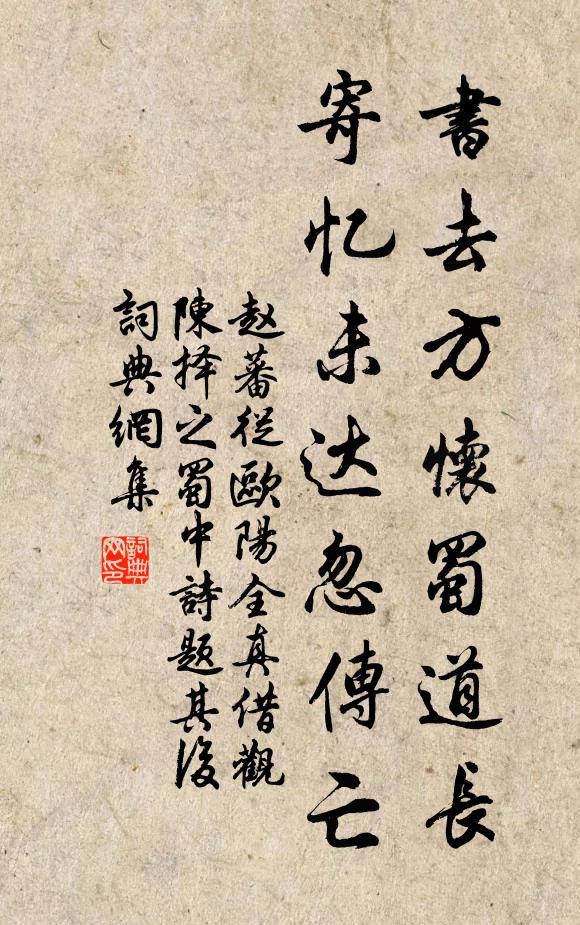 書去方懷蜀道長
寄忆未达忽傳亡
赵蕃從歐陽全真借觀
陳择之蜀中詩題其後
詞典網集
詞典
网印